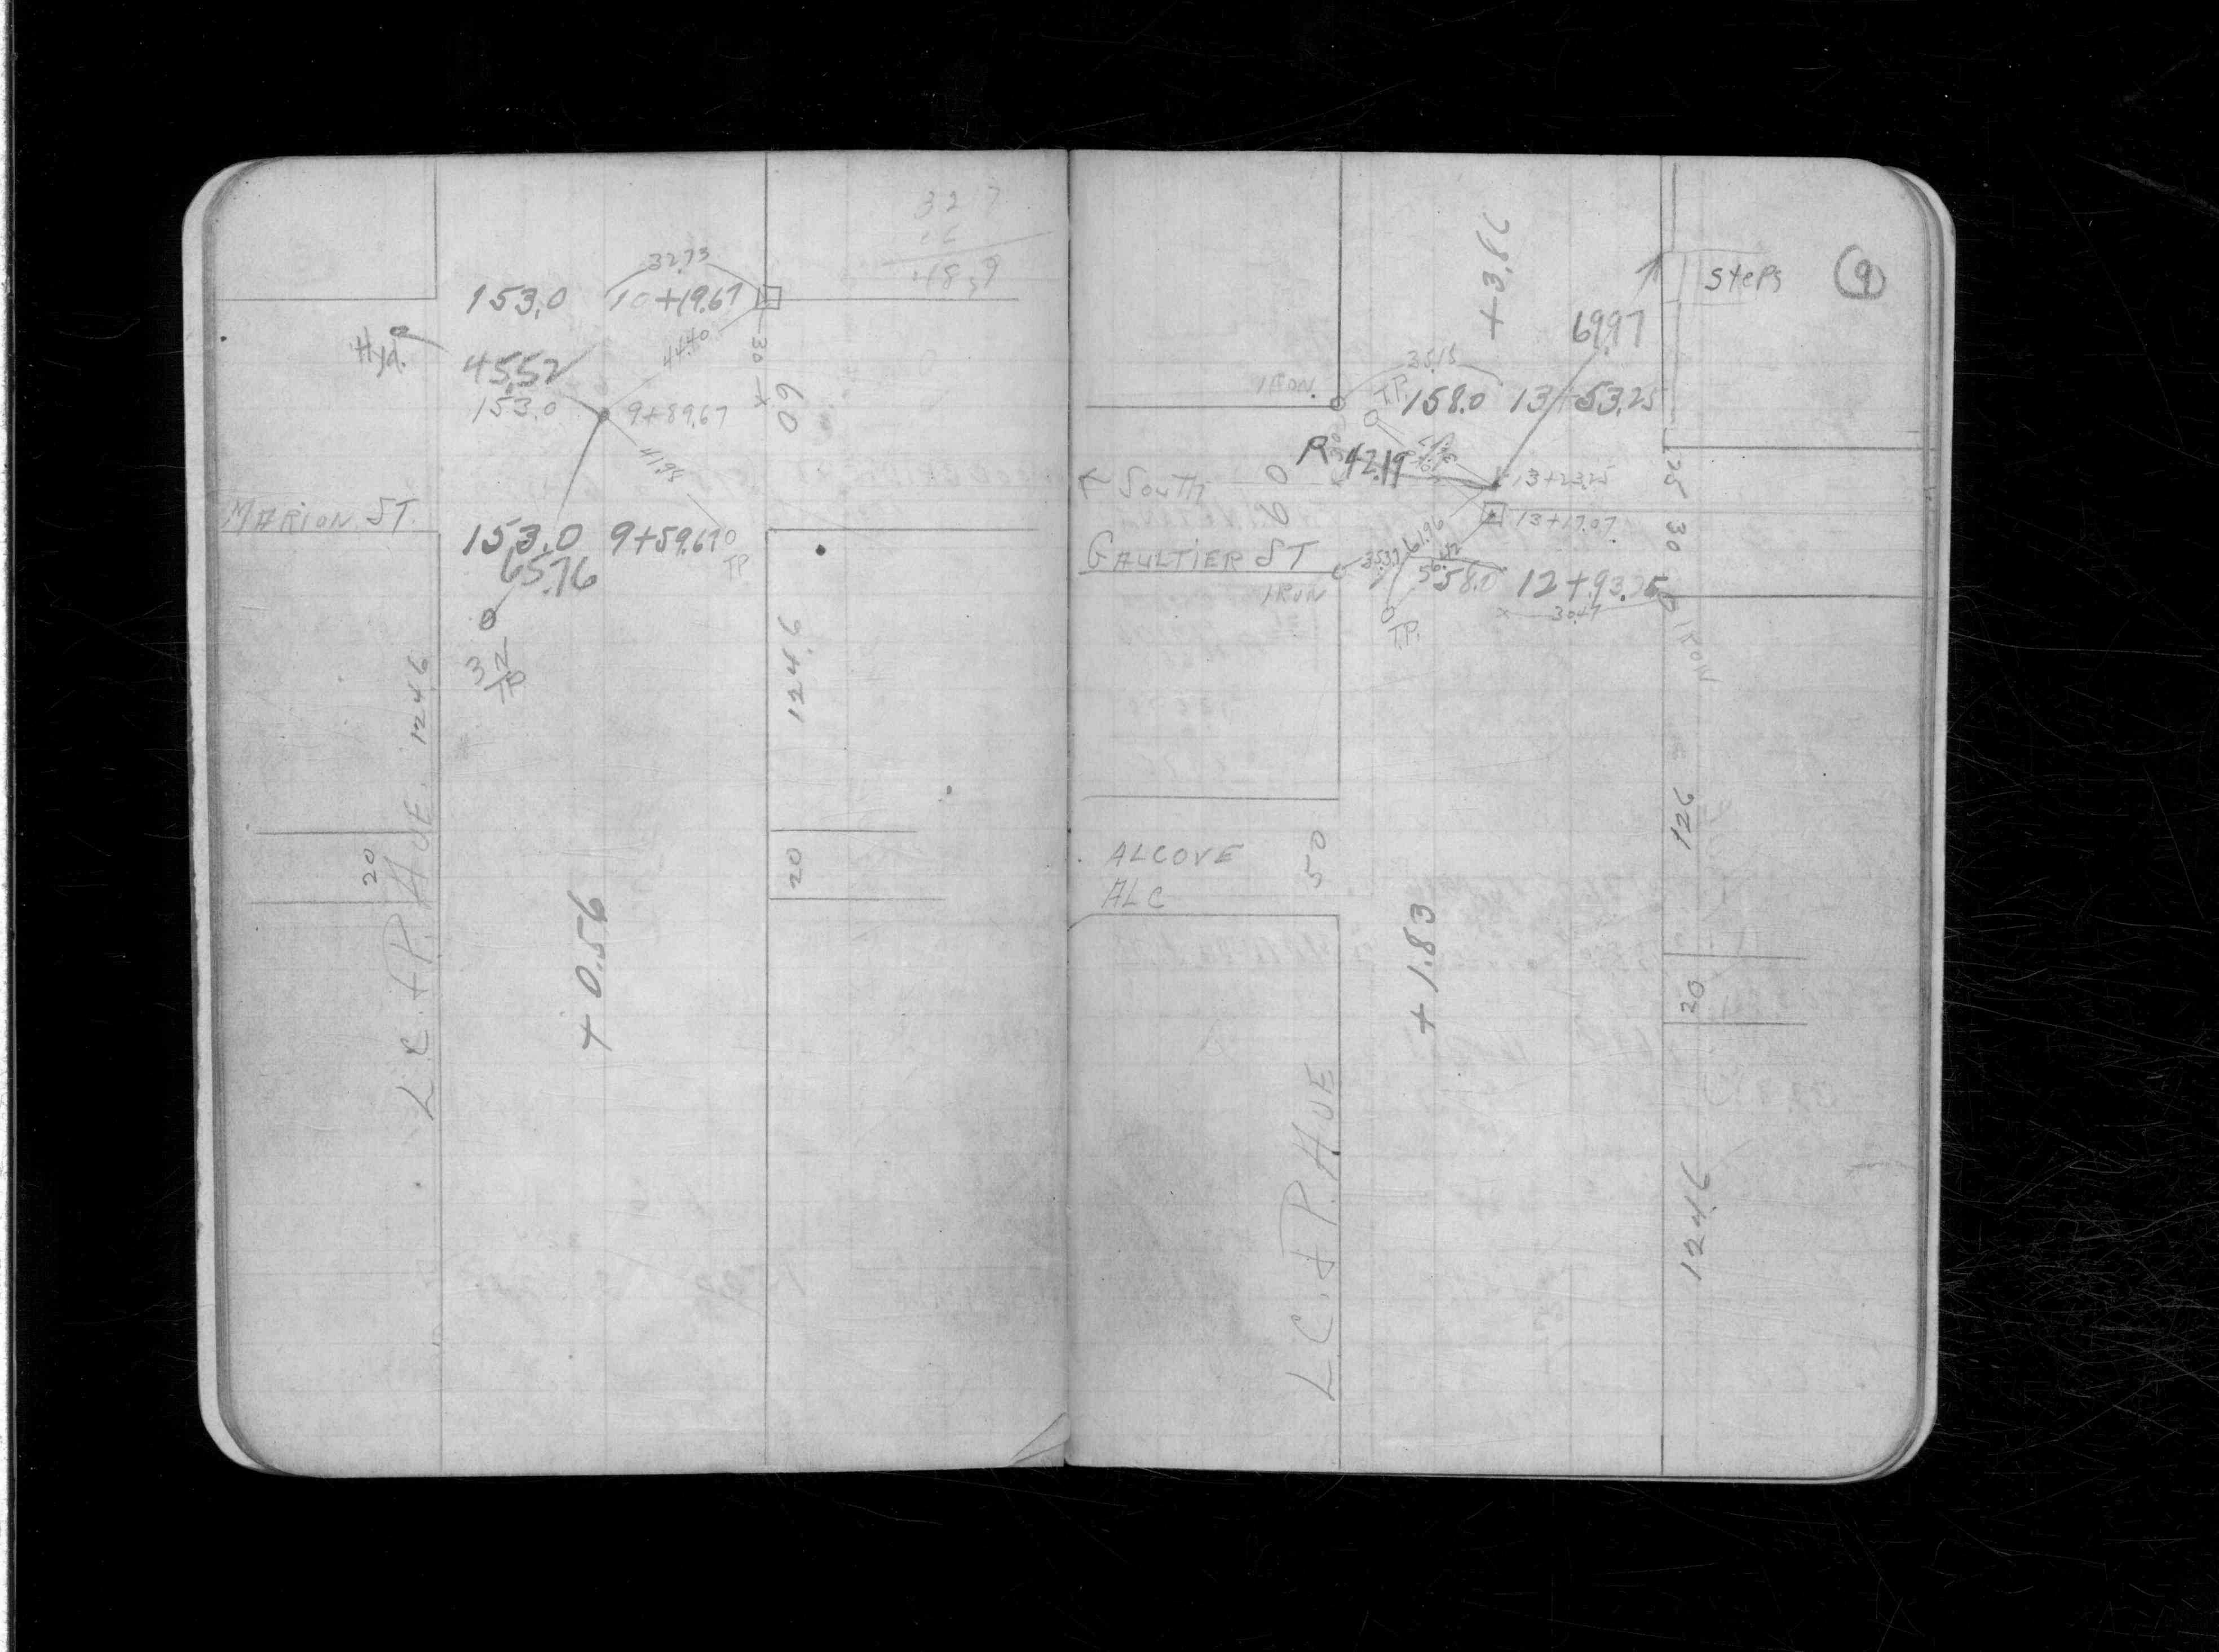 32.73
153.0 10+19.67
Hyd.
44.40
30
45.52
153.0
9+89.67
60
41.98
MARION ST.
153.0 9+59.67
TP
65.76
32
TP
124.6
124.6
20
20
L.C. + P. AVE.
+ 0.56
48.9
+3.86
steps
9
69.97
35.15
IRON.
TP.
158.0 13+53.25
R
42.19
← South
60
13+23.25
25
13+17.07
30
GAULTIER ST
61.96
35.37
56.42
58.0 12+93.25
IRON
30.47
TP.
IRON
126
ALCOVE
ALC
50
+ 1.83
20
L.C. + P. AVE
124.6